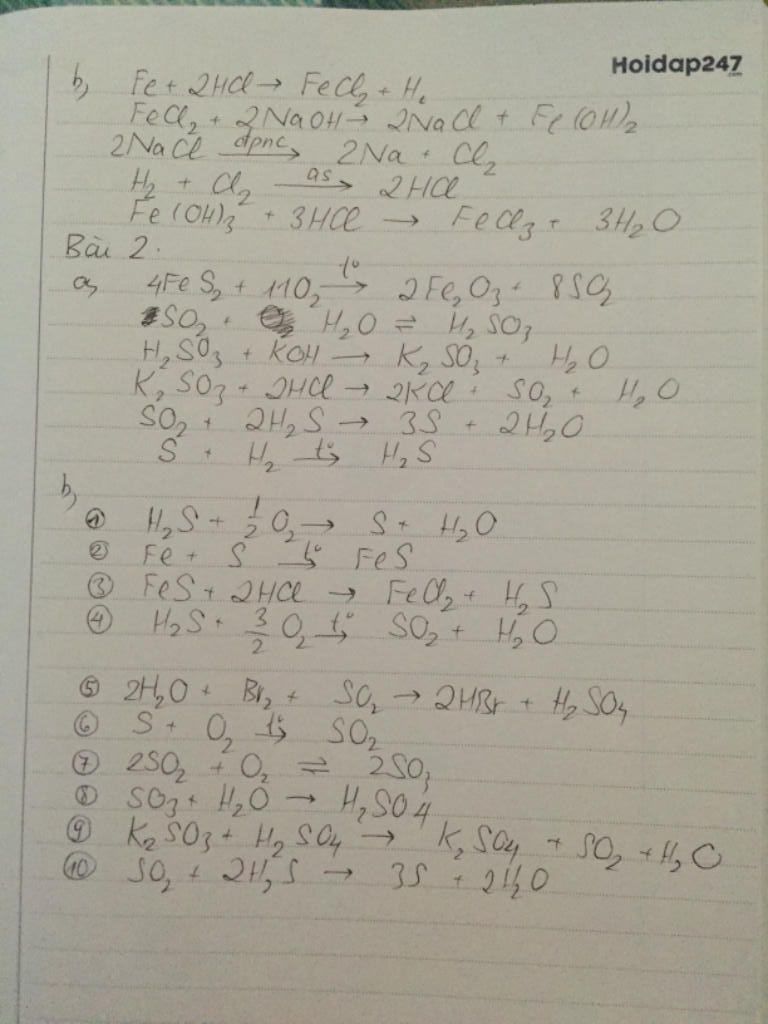 Hoidap247
.com
b, Fe + 2HCl → FeCl₂ + H₂
FeCl₂ + 2NaOH → 2NaCl + Fe(OH)₂
2NaCl dpnc→ 2Na + Cl₂
H₂ + Cl₂ as→ 2HCl
Fe(OH)₃ + 3HCl → FeCl₃ + 3H₂O
Bài 2.
a, 4FeS₂ + 11O₂ t°→ 2Fe₂O₃ + 8SO₂
SO₂ + H₂O ⇌ H₂SO₃
H₂SO₃ + KOH → K₂SO₃ + H₂O
K₂SO₃ + 2HCl → 2KCl + SO₂ + H₂O
SO₂ + 2H₂S → 3S + 2H₂O
S + H₂ t°→ H₂S
b,
① H₂S + 1/2 O₂ → S + H₂O
② Fe + S t°→ FeS
③ FeS + 2HCl → FeCl₂ + H₂S
④ H₂S + 3/2 O₂ t°→ SO₂ + H₂O
⑤ 2H₂O + Br₂ + SO₂ → 2HBr + H₂SO₄
⑥ S + O₂ t°→ SO₂
⑦ 2SO₂ + O₂ ⇌ 2SO₃
⑧ SO₃ + H₂O → H₂SO4
⑨ K₂SO₃ + H₂SO₄ → K₂SO₄ + SO₂ + H₂O
⑩ SO₂ + 2H₂S → 3S + 2H₂O